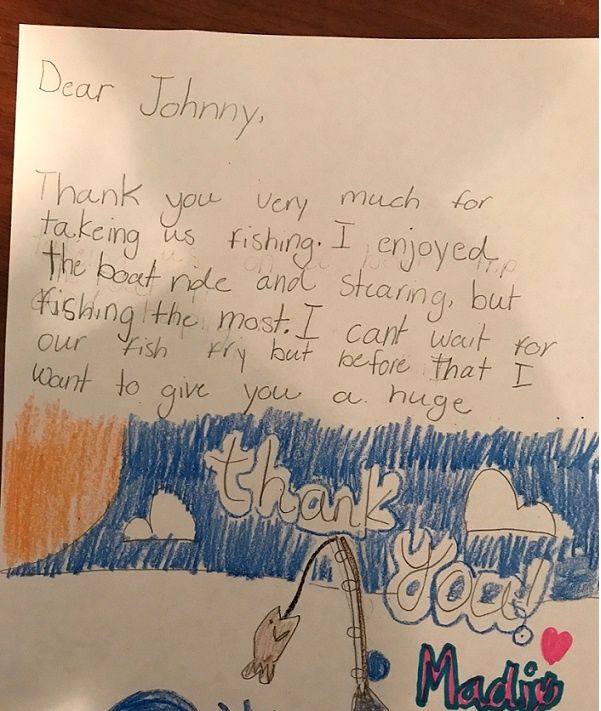 Dear Johnny,
Thank you very much for
takeing us fishing. I enjoyed
the boat ride and stearing, but
fishing the most. I cant wait for
our fish fry but before that I
want to give you a huge
thank
you!